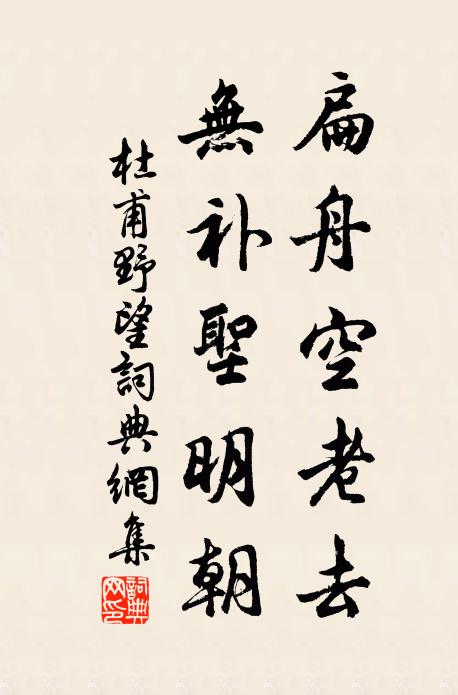 扁舟空老去
無补聖明朝
杜甫野望詞典網集
詞典網印